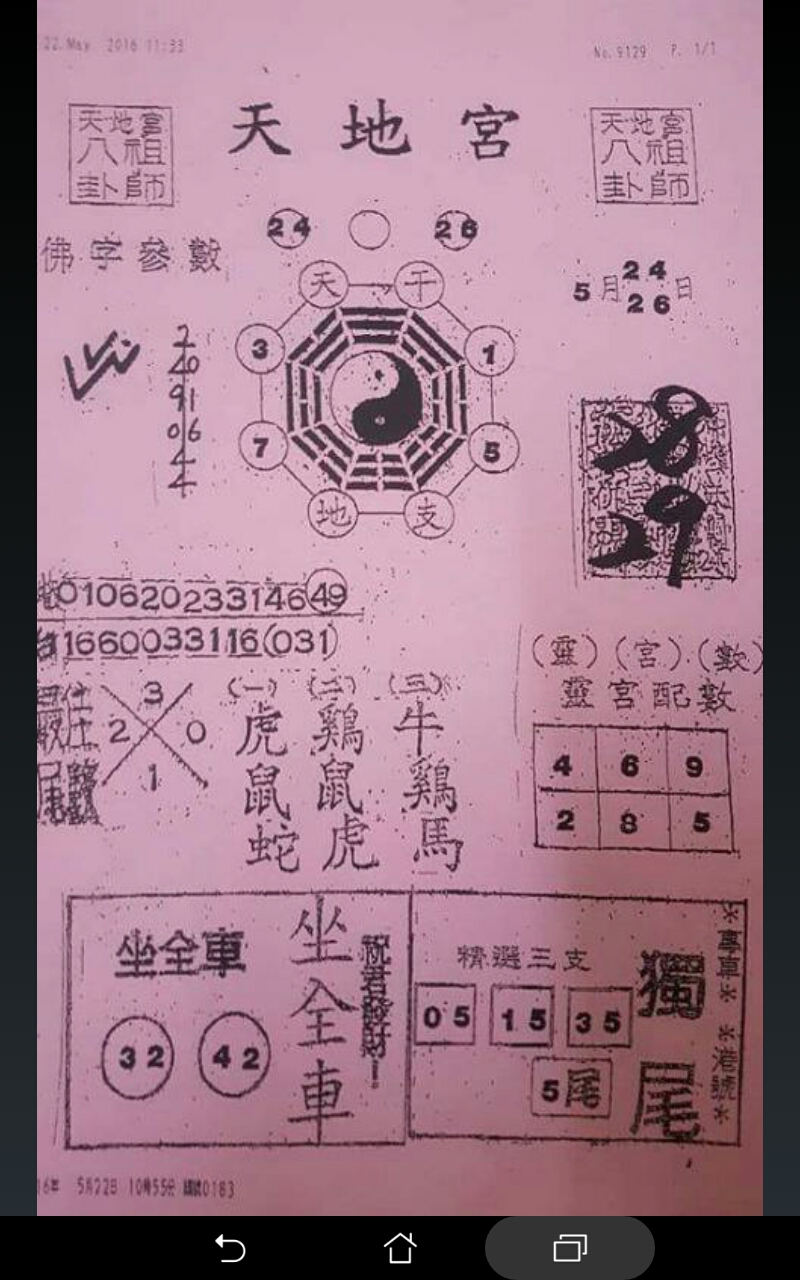 22.May 2016 11:33
No.9129 P. 1/1
天地宮
天地宮
八祖
卦師
天地宮
八祖
卦師
24 26
佛字參數
5月24日
26
天 干
3 1
7 5
地 支
2
20
91
06
4
4
28
29
01062023314649
1166003311 16(031)
(靈)(宮)(數)
靈宮配數
4 6 9
2 8 5
3
2 0
1
(一) (二) (三)
虎 鷄 牛
鼠 鼠 鷄
蛇 虎 馬
坐全車
32 42
坐全車
祝君發財
精選三支
05 15 35
5尾
獨尾
16年 5月22日 10時55分 0183